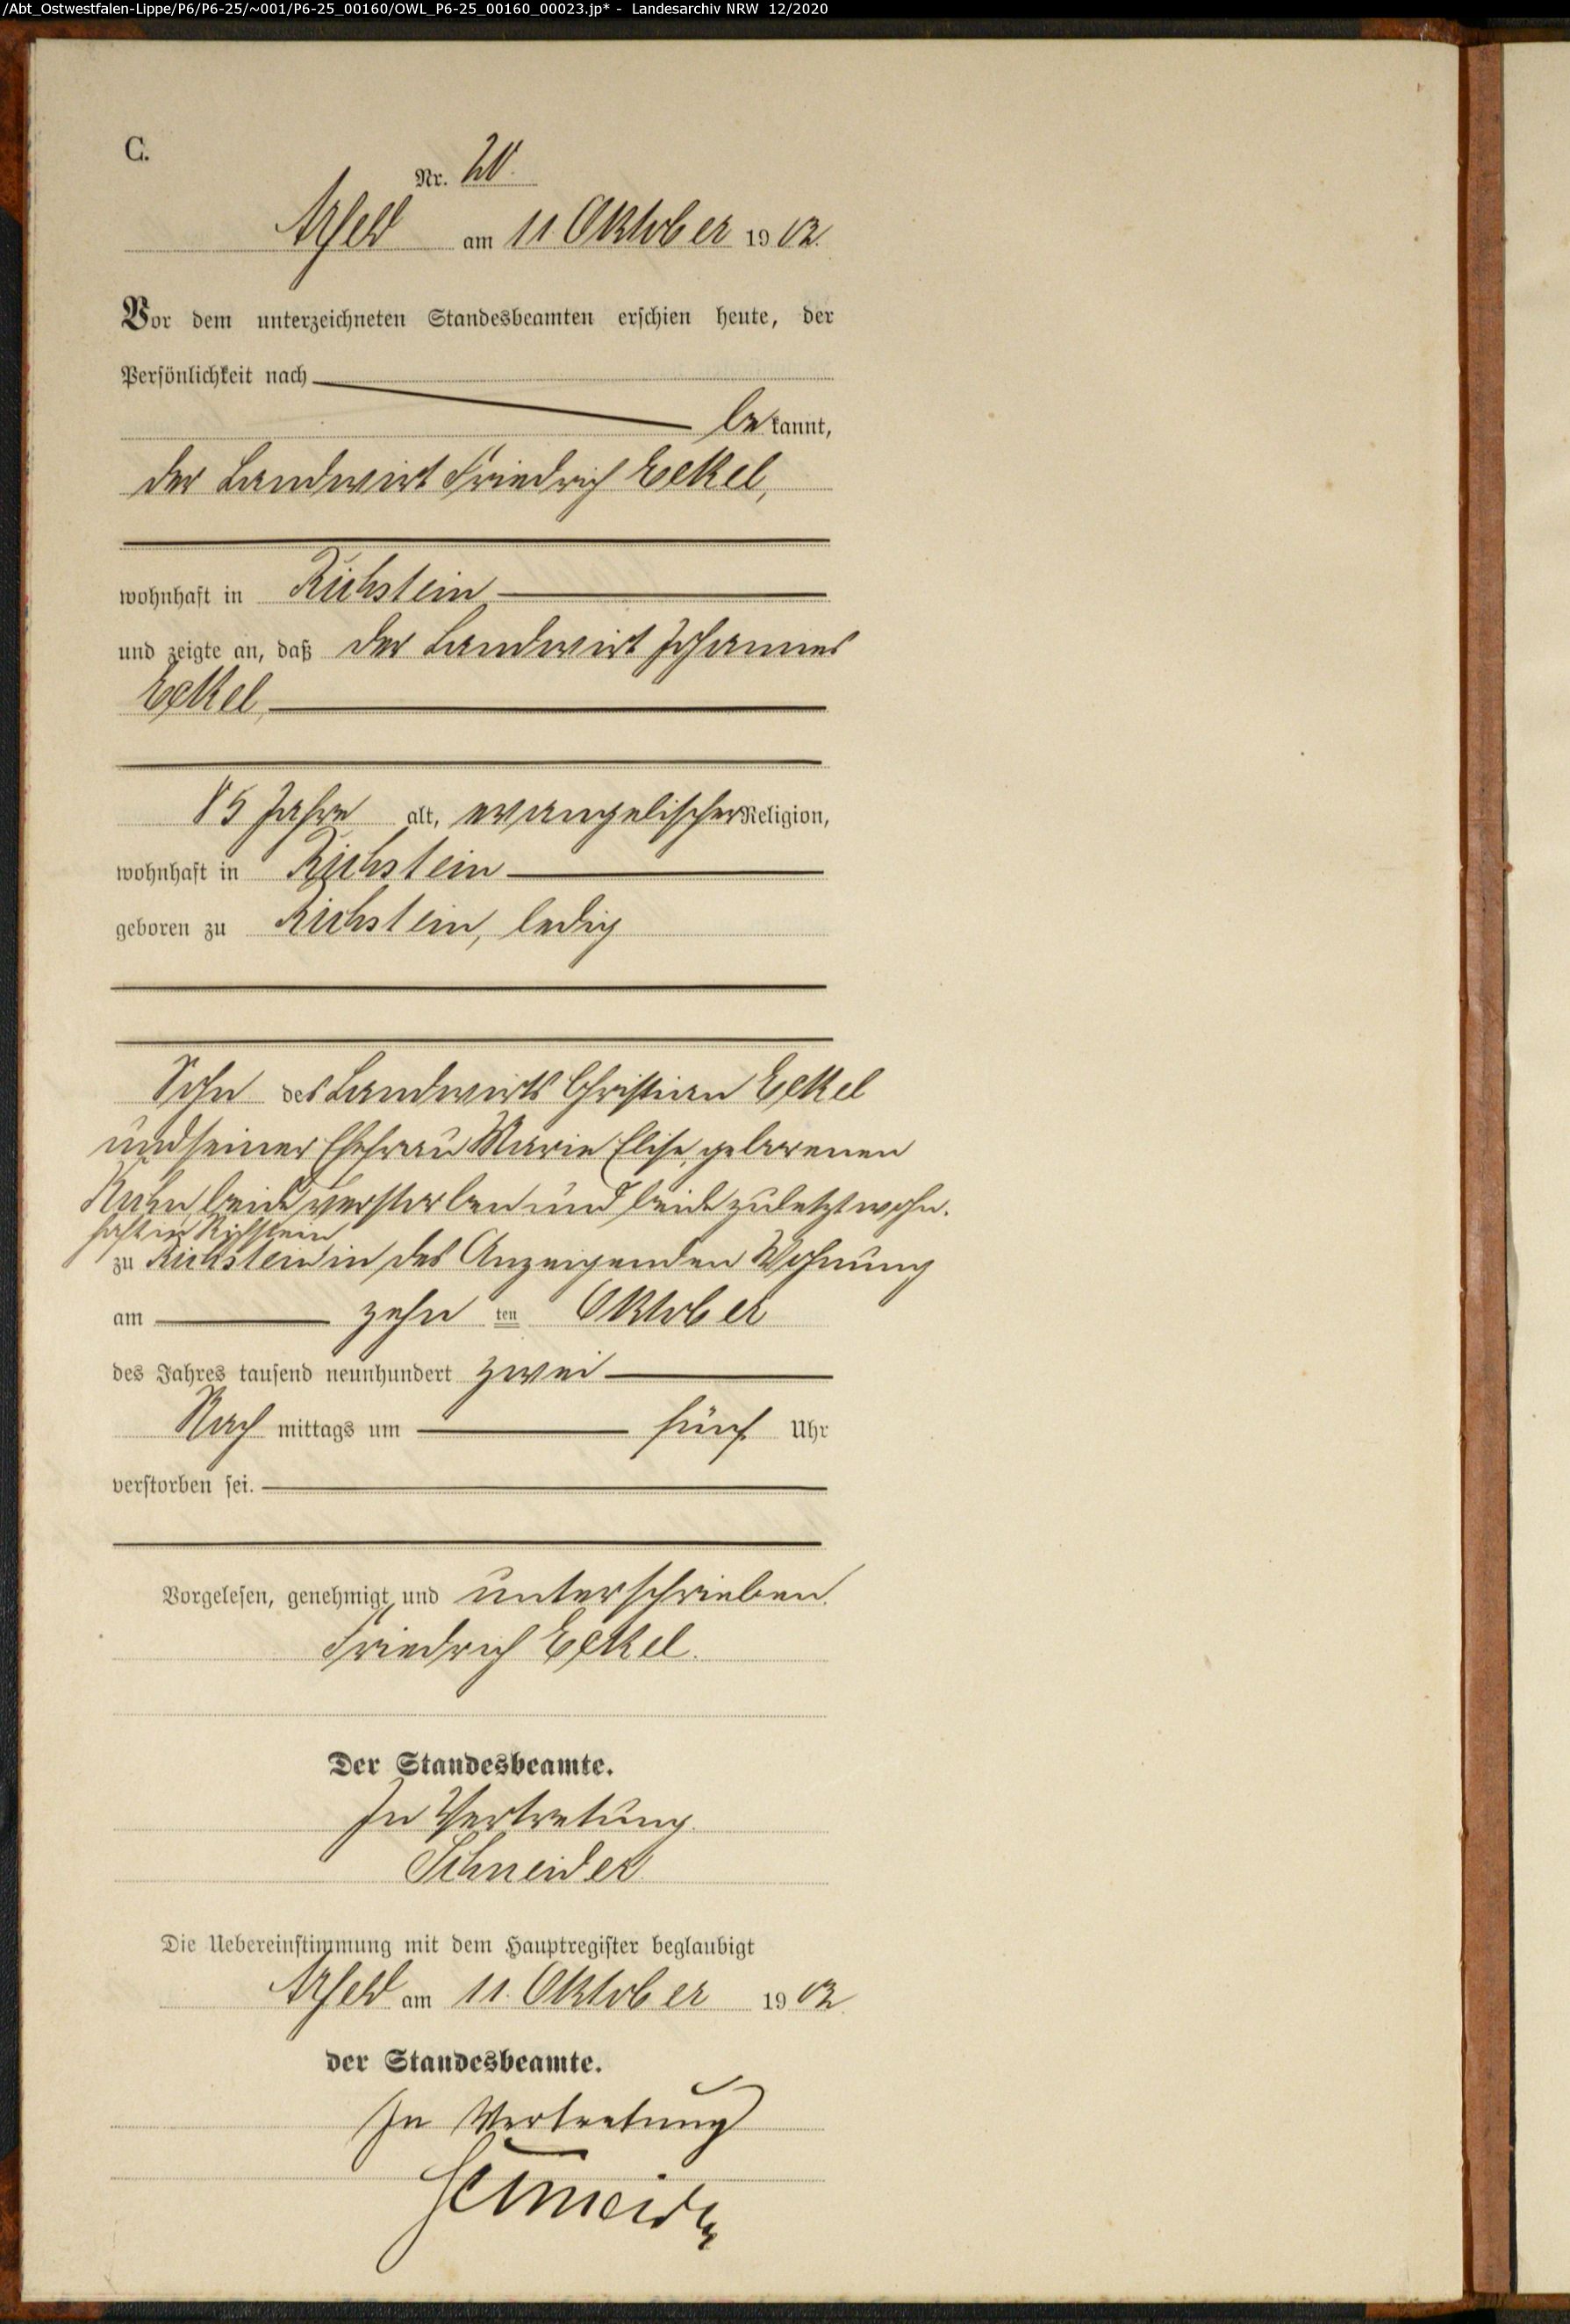 /Abt_Ostwestfalen-Lippe/P6/P6-25/~001/P6-25_00160/OWL_P6-25_00160_00023.jp* - Landesarchiv NRW 12/2020
C.
Nr. 20.
Arfeld am 11 Oktober 1902.
Vor dem unterzeichneten Standesbeamten erschien heute, der
Persönlichkeit nach
bekannt,
der Landwirt Friedrich Eckel,
wohnhaft in Richstein
und zeigte an, daß der Landwirt Johannes
Eckel,
85 Jahre alt, evangelischer Religion,
wohnhaft in Richstein
geboren zu Richstein, ledig
Sohn des Landwirts Christian Eckel
und seiner Ehefrau Marie Elise, geborenen
beide verstorben und beide zuletzt wohn-
haft in Richstein
zu Richstein in des Anzeigenden Wohnung
am zehn ten Oktober
des Jahres tausend neunhundert zwei
Nach mittags um fünf Uhr
verstorben sei.
Vorgelesen, genehmigt und unterschrieben.
Friedrich Eckel.
Der Standesbeamte.
In Vertretung.
Schneider
Die Uebereinstimmung mit dem Hauptregister beglaubigt
Arfeld am 11. Oktober 1902
der Standesbeamte.
In Vertretung
Schneider